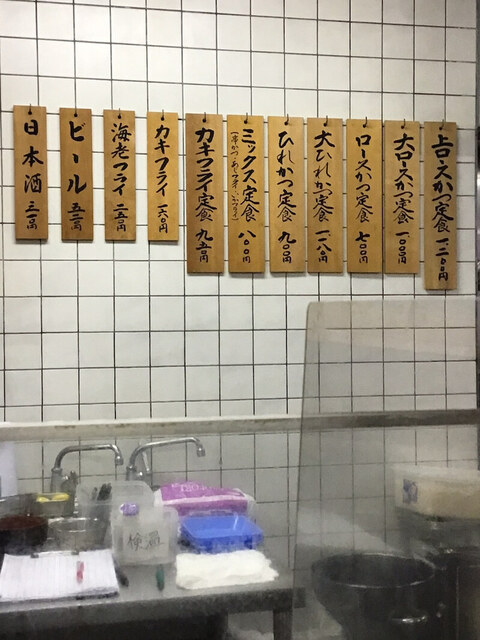 上ロースかつ定食 一、三〇〇円
大ロースかつ定食 一、〇〇〇円
ロースかつ定食 七〇〇円
大ひれかつ定食 一、一八〇円
ひれかつ定食 九〇〇円
ミックス定食 八〇〇円
カキフライ定食 九五〇円
カキフライ 一六〇円
海老フライ 二五〇円
ビール 五三〇円
日本酒 三一〇円